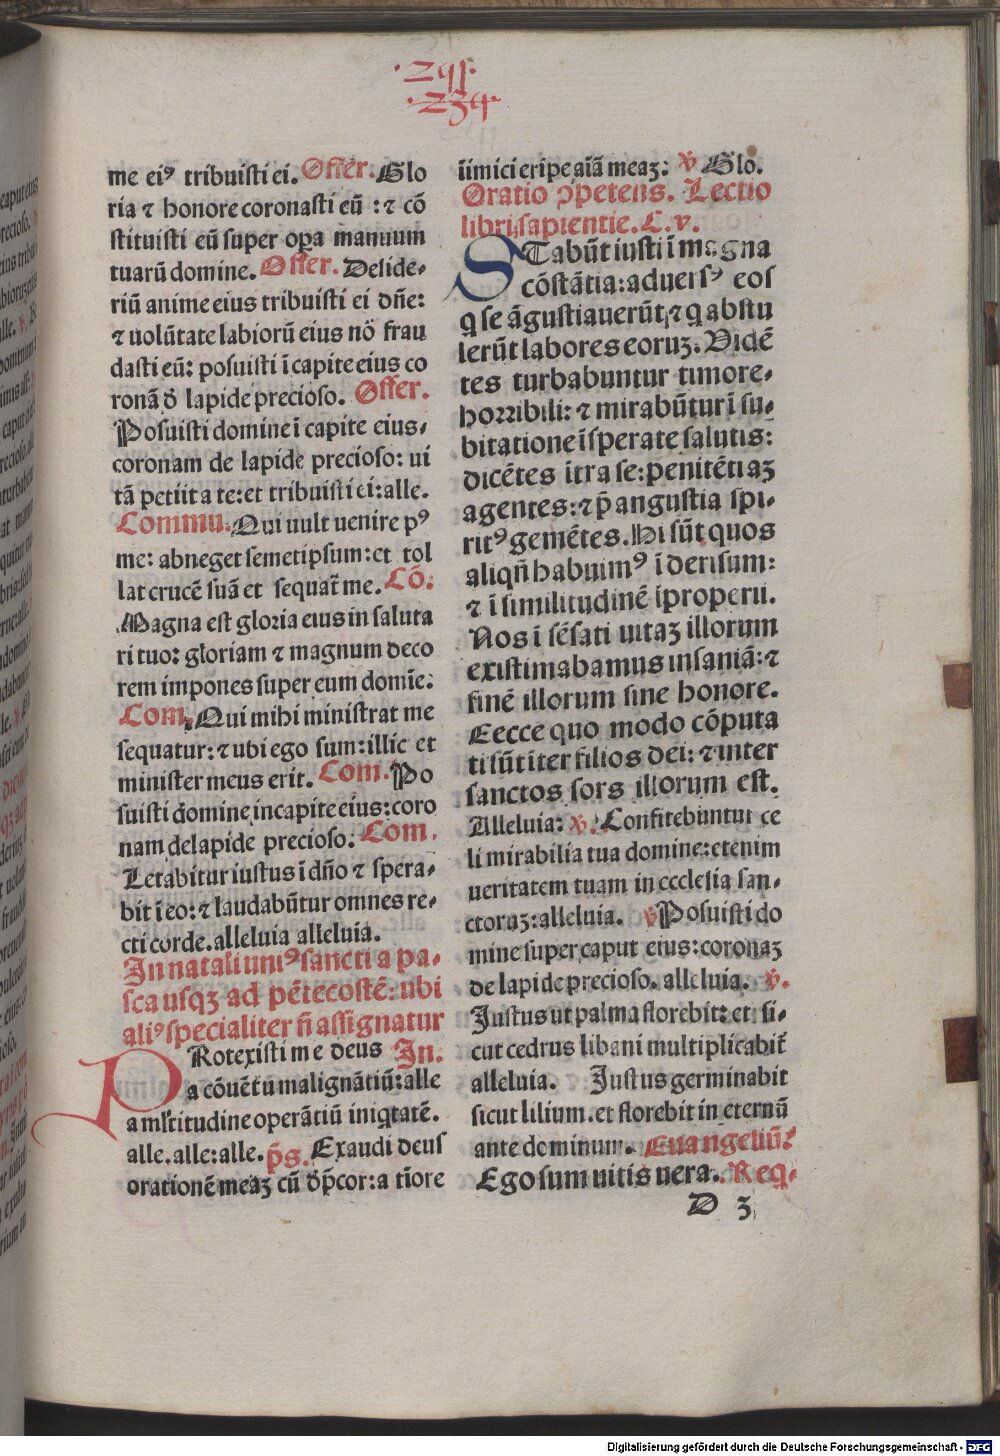 ·291·
·234·
me eiꝰ tribuisti ei. Offer. Glo
ria ⁊ honore coronasti eũ : ⁊ cō
stituisti eũ super oꝑa manuum
tuarũ domine. Offer. Deside-
riũ anime eius tribuisti ei dñe:
⁊ uolũtate labiorũ eius nō frau
dasti eũ: posuisti ī capite eius co
ronā đ lapide precioso. Offer.
Posuisti domine ī capite eius-
coronam de lapide precioso: ui
tā petiit a te: et tribuisti ei: alle.
Commu. Qui uult uenire pꝰ
me: abneget semetipsum: et tol
lat crucē suā et sequat̃ me. Cō.
Magna est gloria eius in saluta
ri tuo: gloriam ⁊ magnum deco
rem impones super eum domīe:
Com. Qui mihi ministrat me
sequatur: ⁊ ubi ego sum: illic et
minister meus erit. Com. Po
suisti domine in capite eius: coro
nam de lapide precioso: Com.
Letabitur iustus ī dño ⁊ spera-
bit ī eo: ⁊ laudabũtur omnes re-
cti corde. alleluia alleluia.
In natali uniꝰ sancti a pa-
sca usqꝫ ad pētecostē: ubi
aliꝰ specialiter ñ assignatur
PRotexisti me deus In.
a cōuẽtu malignātiũ: alle
a mℓtitudine operātiũ iniqtatē.
alle. alle: alle. p̄s. Exaudi deus
orationē meaꝫ cũ đp̄cor: a tīore
īimici eripe aīā meaꝫ: ℣ Glo.
Oratio ꝯpetens. Lectio
libri sapientie. C. v.
STabũt iusti ī magna
cōstātia: aduersꝰ eos
q se āgustiauerũt, ⁊ q abstu
lerũt labores eoruꝫ. Vidē
tes turbabuntur timore-
horribili: ⁊ mirabũtur ī su-
bitatione īsperate salutis:
dicētes itra se: penitētiaꝫ
agentes: ⁊ p̄ angustia spi-
ritꝰ gemētes. Hi sũt quos
aliqñ habuimꝰ ī derisum:
⁊ ī similitudinē īproperii.
Nos ī sēsati uitaꝫ illorum
existimabamus insaniā: ⁊
finē illorum sine honore.
Eecce quo modo cōputa
ti sũt iter filios dei: ⁊ inter
sanctos sors illorum est.
Alleluia: ℣. Confitebuntur ce
li mirabilia tua domine: etenim
ueritatem tuam in ecclesia san-
ctoraꝫ: alleluia. ℣ Posuisti do
mine super caput eius: coronaꝫ
de lapide precioso. alleluia. ℣.
Justus ut palma florebit: et si-
cut cedrus libani multiplicabit̃
alleluia. Justus germinabit
sicut lilium. et florebit in eternũ
ante dominum. Euangeliũ.
Ego sum uitis uera. Req.
D 3
Digitalisierung gefördert durch die Deutsche Forschungsgemeinschaft - DFG